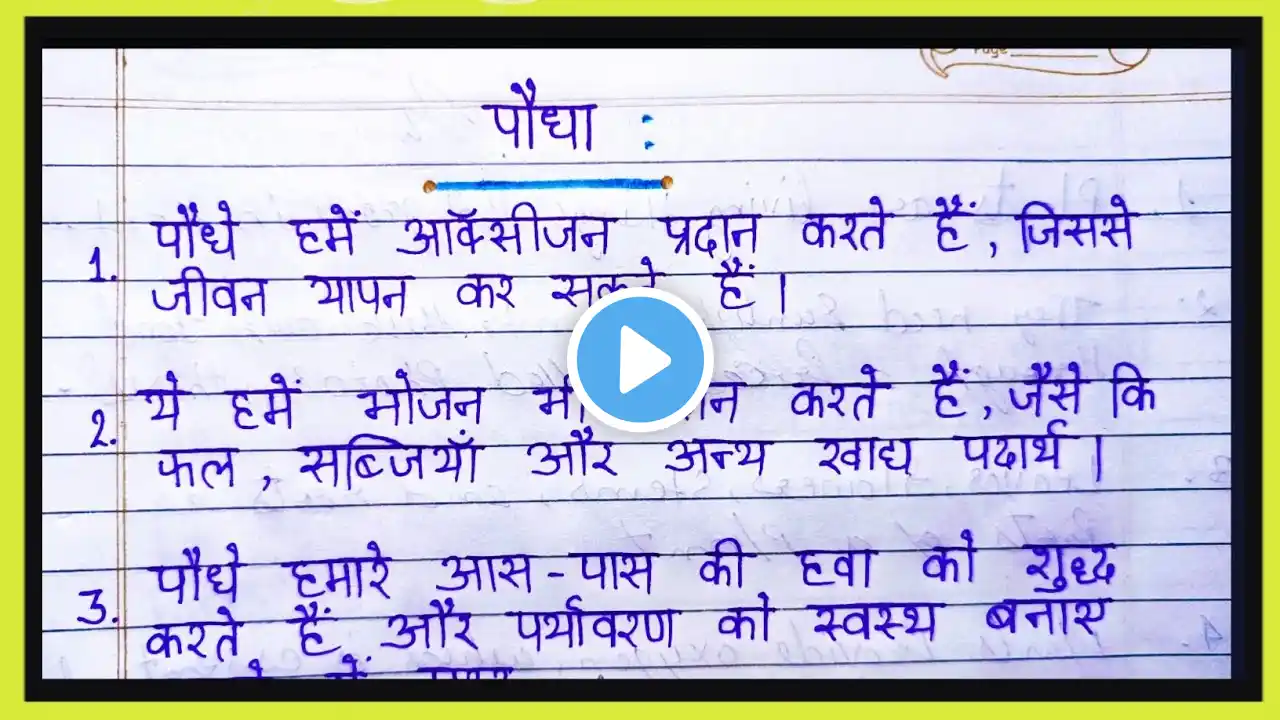 Page
पौधा :
1. पौधे हमें ऑक्सीजन प्रदान करते हैं, जिससे
जीवन यापन कर सकते हैं।
2. ये हमें भोजन करते हैं, जैसे कि
फल, सब्जियाँ और अन्य खाद्य पदार्थ।
3. पौधे हमारे आस-पास की हवा को शुद्ध
करते हैं और पर्यावरण को स्वस्थ बनाए